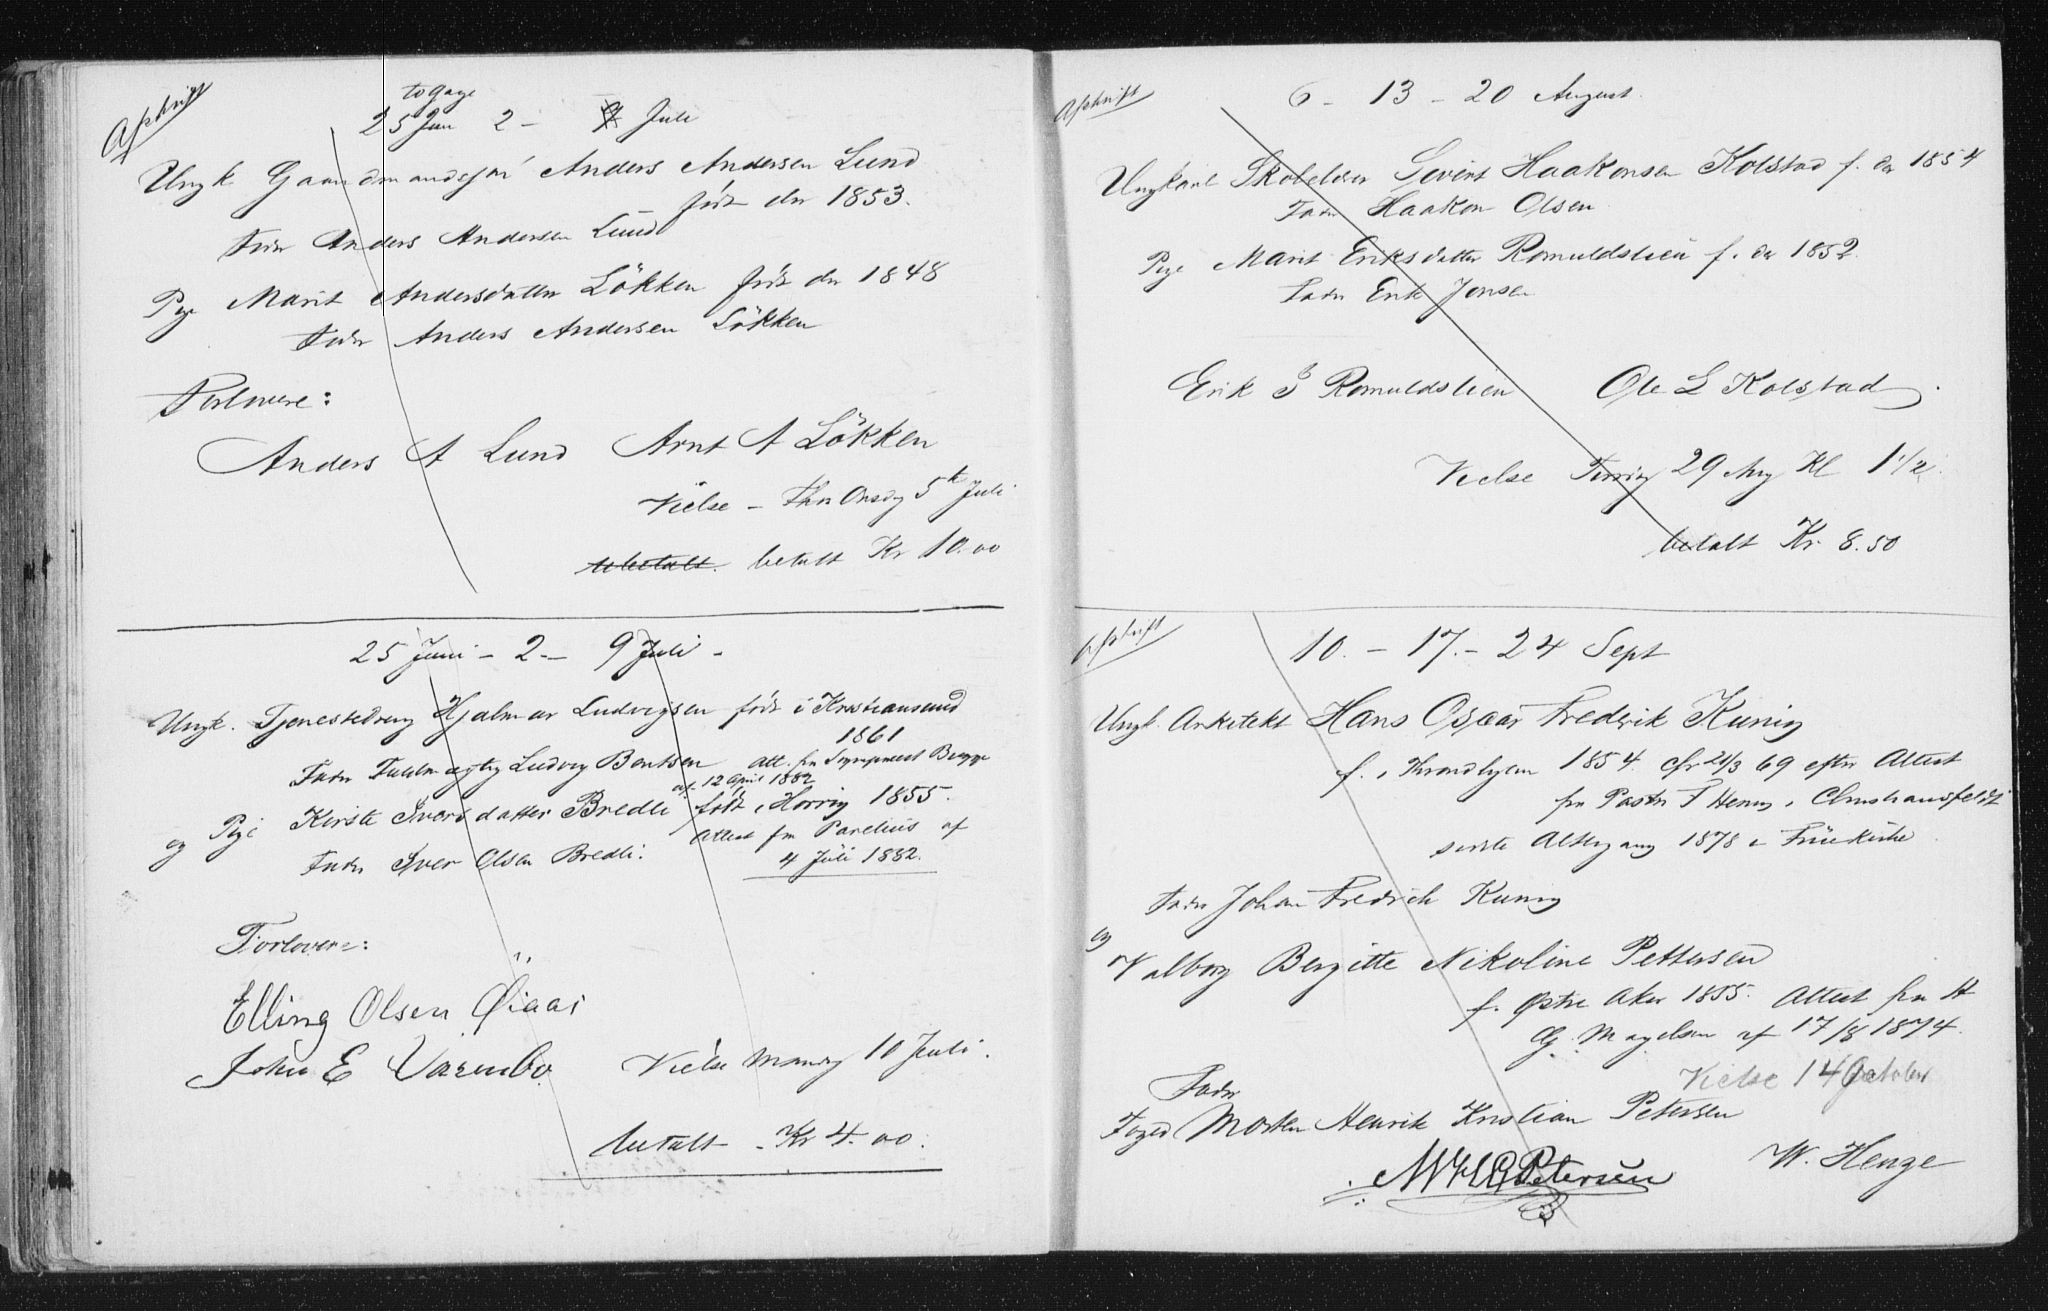 Afskrift
to gage
25 Juni 2 - 9 Juli
Ungk Gaardmandssøn Anders Andersen Lund
født der 1853.
Fader Anders Andersen Lund
Pige Marit Andersdatter Lökken född der 1848
Fader Anders Andersen Lökken
Forlovere:
Anders A Lund Arnt A Lökken
Vielse - Onsdag 5te Juli
betalt Kr 10.00
25 Juni - 2 - 9 Juli -
Ungk. Tjenestedreng Hjalmar Ludvigsen född i Kristiansund
1861
Fader Ludvig Bentsen Att. fra Sogneprest Brugge
af 12 April 1882
og Pige Kirsti Iversdatter Bredli född i Horrig 1855.
Attest fra Parelius af
Fader Iver Olsen Bredli.
4 Juli 1882.
Forlovere:
Elling Olsen Øiaas
John E Varmbo Vielse Mandag 10 Juli.
betalt - Kr 4.00.
Afskrift
6 - 13 - 20 August.
Ungkarl Skolelærer Sivert Haakonsen Kolstad f. der 1854
Fader Haakon Olsen
Pige Marit Eriksdatter Romuldslien f. der 1852.
Fader Erik Jonsen
Erik J Romuldslien Ole L Kolstad.
Vielse Tirsdag 29 Aug Kl 1 1/2.
betalt Kr. 8.50
Afskrift
10. - 17. - 24 Sept
Ungk. Arkitekt Hans Oscar Fredrik Kunig
f. i Throndhjem 1854. cfr 21/3 69 efter Attest
fra Pastor i Christiansfeldt
sidste Altergang 1878 i Fruekirke
Fader Johan Fredrich Kunig
og
Valborg Bergitte Nikoline Pettersen
f. Østre Aker 1855. Attest fra H
G. Magelsen af 17/8 1874.
Vielse 14 October
Fader
Foged Morten Henrik Kristian Petersen
MHC Petersen W. Henge